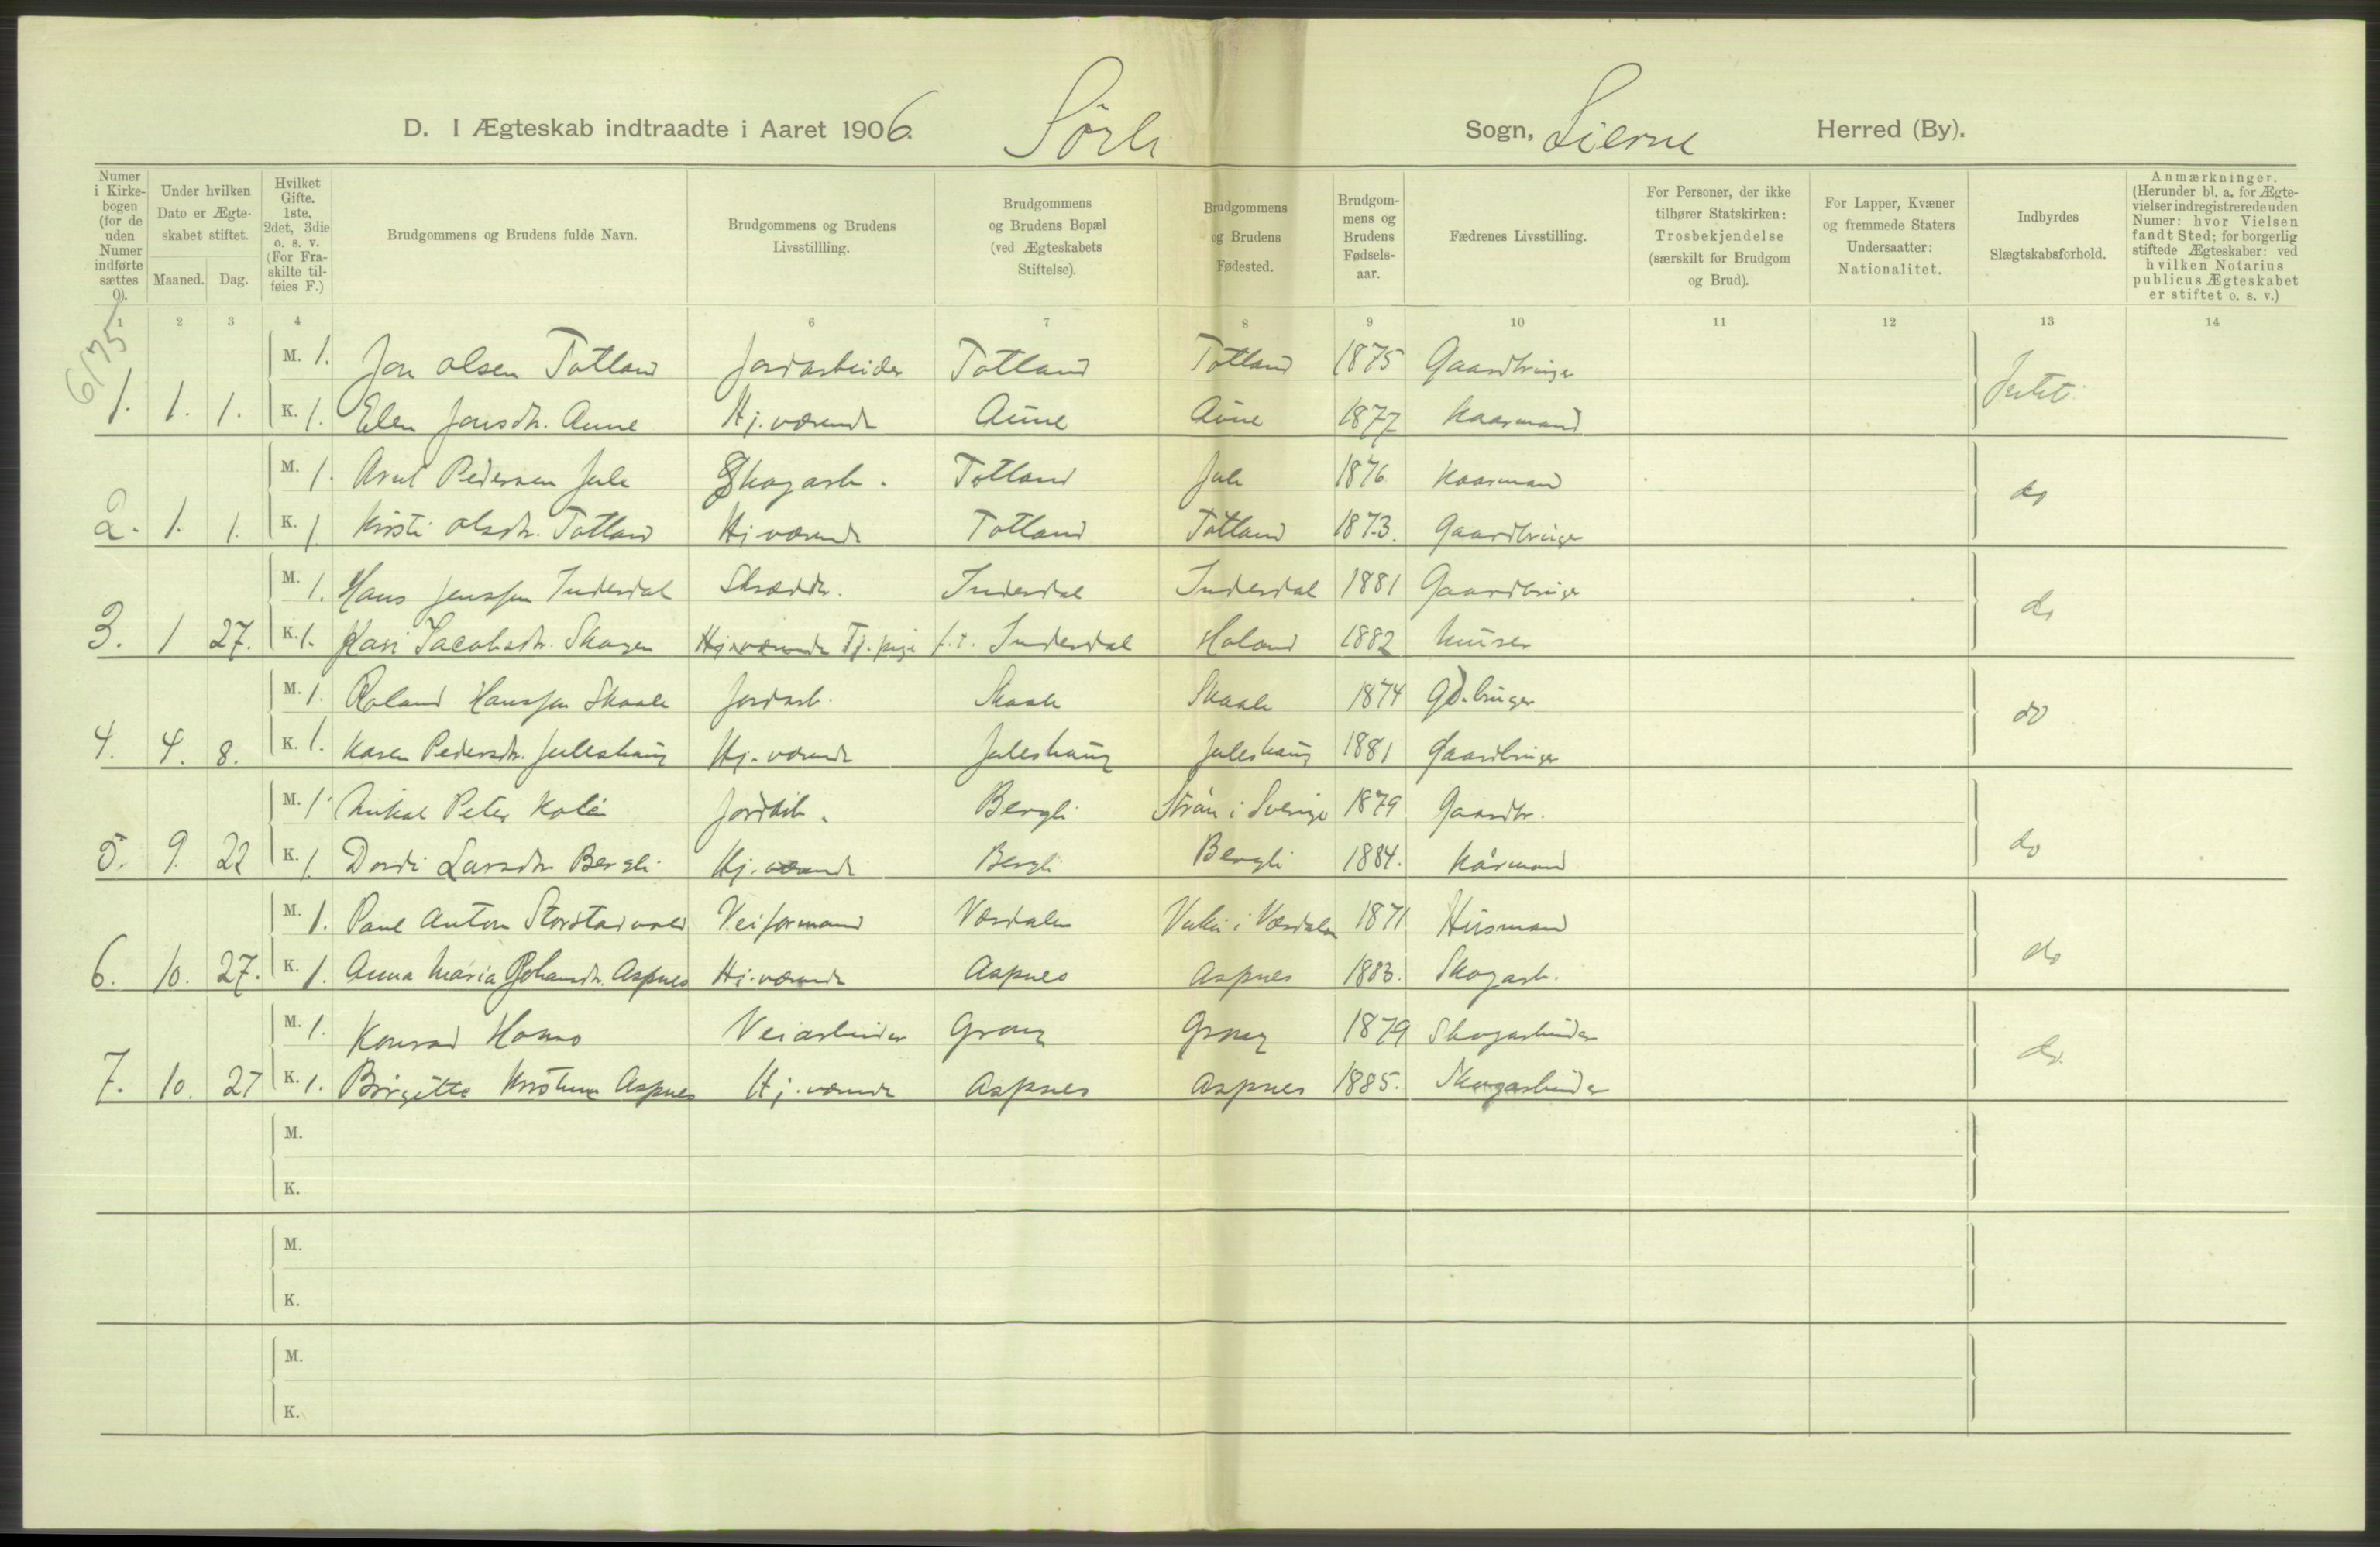 D. I Ægteskab indtraadte i Aaret 1906. Sørli Sogn, Lierne Herred (By).
Numer i Kirkebogen (for de uden Numer indførte sættes 0).
Under hvilken Dato er Ægteskabet stiftet.
Maaned. Dag.
Hvilket Gifte. 1ste, 2det, 3die o. s. v. (For Fraskilte tilføies F.)
Brudgommens og Brudens fulde Navn.
Brudgommens og Brudens Livsstillling.
Brudgommens og Brudens Bopæl (ved Ægteskabets Stiftelse).
Brudgommens og Brudens Fødested.
Brudgommens og Brudens Fødselsaar.
Fædrenes Livsstilling.
For Personer, der ikke tilhører Statskirken: Trosbekjendelse (særskilt for Brudgom og Brud).
For Lapper, Kvæner og fremmede Staters Undersaatter: Nationalitet.
Indbyrdes Slægtskabsforhold.
Anmærkninger. (Herunder bl. a. for Ægtevielser indregistrerede uden Numer: hvor Vielsen fandt Sted; for borgerlig stiftede Ægteskaber: ved hvilken Notarius publicus Ægteskabet er stiftet o. s. v.)
1 2 3 4 6 7 8 9 10 11 12 13 14
6175
M. 1. Jon Olsen Totland Jordarbeider Totland Totland 1875 Gaardbruger Intet
1. 1. 1. K. 1. Elen Jonsdtr. Aune Hj. værende Aune Aune 1877 Kaarmand
M. 1. Arnt Pedersen Jule Skogarb. Totland Jule 1876 Kaarmand do
2. 1. 1. K. 1 Kirsti Olsdtr. Totland Hj værende Totland Totland 1873. Gaardbruger
M. 1. Hans Jenssen Inderdal Skrædder. Inderdal Inderdal 1881 Gaardbruger do
3. 1 27. K. 1. Kari Jacobsdtr. Skogen Hj. værende Tj. pige f. t. Inderdal Holand 1882 Murer
M. 1. Roland Hanssen Skaale Jordarb. Skaale Skaale 1874 Gd. bruger do
4. 4. 8. K. 1. Karen Pedersdtr. Juleshaug Hj. værende Juleshaug Juleshaug 1881 Gaardbruger
M. 1 Mikal Peter Kolén Jordarb. Bergli Ström i Sverige 1879 Gaardbr. do
5. 9. 22 K. 1. Dordi Larsdtr Bergli Hj. værende Bergli Bergli 1884. Kårmand
M. 1. Paul Anton Storstadvold Veiformand Værdalen Vuku i Værdalen 1871 Husmand do
6. 10. 27. K. 1. Anna Maria Johansdtr. Aspnes Hj. værende Aspnes Aspnes 1883. Skogarb.
M. 1. Konrad Homo Veiarbeider Grong Grong 1879 Skogarbeider do.
7. 10. 27 K. 1. Birgitte Kristine Aspnes Hj. værende Aspnes Aspnes 1885. Skogarbeider
M.
K.
M.
K.
M.
K.